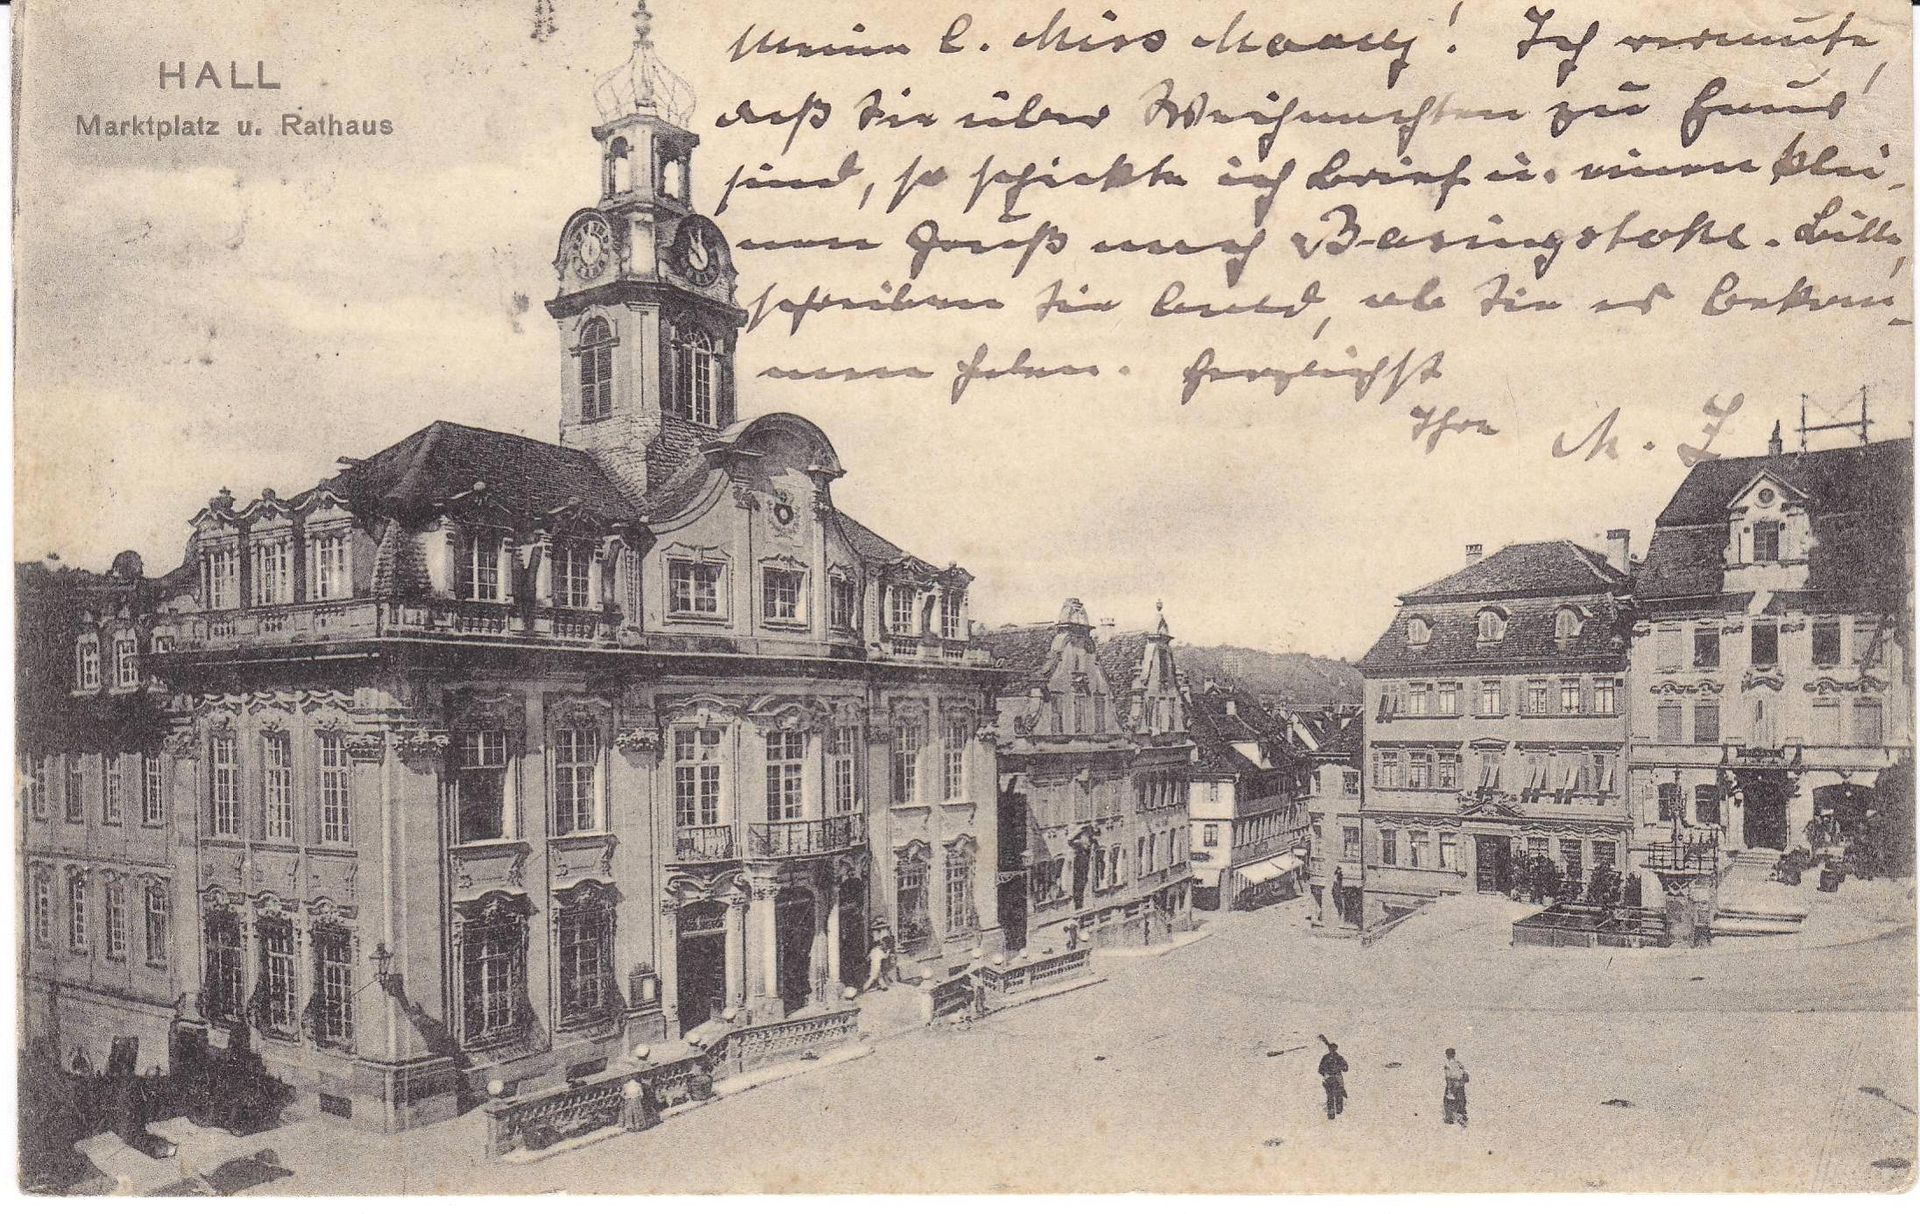 HALL
Marktplatz u. Rathaus
Meine l. Miss Moody! Ich vermute,
daß Sie über Weihnachten zu Haus
sind, so schickte ich Brief u. einen klei-
nen Gruß nach Basingstoke. Bitte,
schreiben Sie bald, ob Sie es bekom-
men haben. Herzlichst
Ihre M. Z